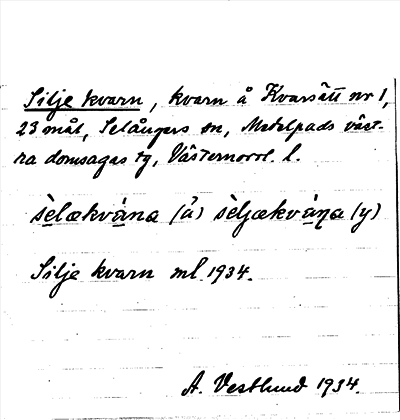 Silje kvarn, kvarn å Kvarsätt nr 1,
23 mål, Selångers sn, Medelpads väst-
ra domsagas tg, Västernorrl. l.
sèlækvàna (ä) sèljækvàṇa (y)
Silje kvarn ml. 1934.
A. Vestlund 1934.